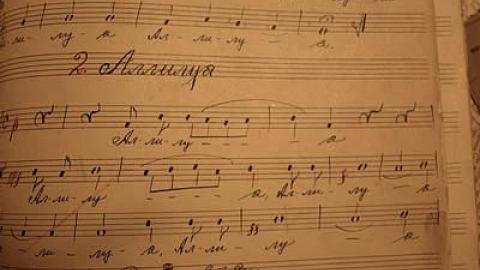 ли - лу - а Ал - ли - лу - а.
2. Аллилуа
Ал - ли - лу - - - - а
Ал - ли - лу - - - - а, Ал - ли - лу - а
- - ли - лу - а, Ал - ли - лу - а